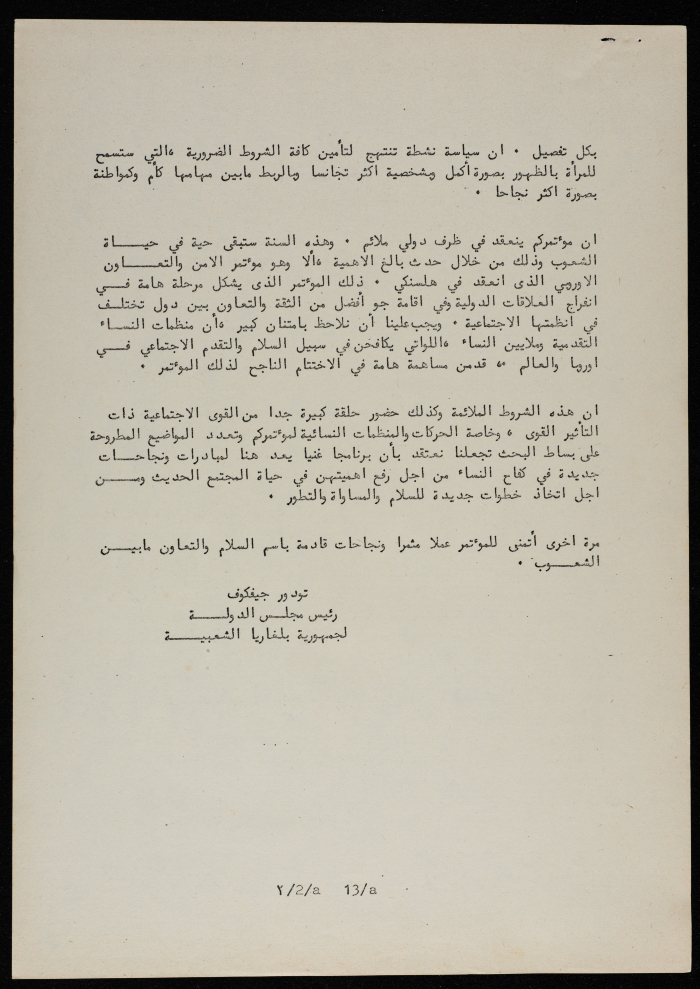 بكل تفصيل . ان سياسة نشطة تنتهج لتأمين كافة الشروط الضرورية ،التي ستسمح
للمرأة بالظهور بصورة أكمل وبشخصية اكثر تجانسا وبالربط مابين مهامها كأم وكمواطنة
بصورة اكثر نجاحا .
ان موٴتمركم ينعقد في ظرف دولي ملائم . وهذه السنة ستبقى حية في حيــــاة
الشعوب وذلك من خلال حدث بالغ الاهمية ،ألا وهو موٴتمر الامن والتعـــاون
الاوروبي الذى انعقد في هلسنكي . ذلك الموٴتمر الذى يشكل مرحلة هامة فـــي
انفراج العلاقات الدولية وفي اقامة جو أفضل من الثقة والتعاون بين دول تختلــف
في انظمتها الاجتماعية . ويجب علينا أن نلاحظ بامتنان كبير ،أن منظمات النســاء
التقدمية وملايين النساء ،اللواتي يكافحن في سبيل السلام والتقدم الاجتماعي فـــي
اوروبا والعالم ،، قدمن مساهمة هامة في الاختتام الناجح لذلك الموٴتمر .
ان هذه الشروط الملائمة وكذلك حضور حلقة كبيرة جدا من القوى الاجتماعية ذات
التأثير القوى ، وخاصة الحركات والمنظمات النسائية لموٴتمركم وتعدد المواضيع المطروحة
على بساط البحث تجعلنا نعتقد بأن برنامجا غنيا يعد هنا لمبادرات ونجاحــات
جديدة في كفاح النساء من اجل رفع اهميتهن في حياة المجتمع الحديث ومــــن
اجل اتخاذ خطوات جديدة للسلام والمساواة والتطور .
مرة اخرى أتمنى للموٴتمر عملا مثمرا ونجاحات قادمة باسم السلام والتعاون مابيــن
الشعــــوب .
تودور جيفكوف
رئيس مجلـس الدولـــــة
لجمهورية بلغاريا الشعبيـــــة
٢/2/a 13/a